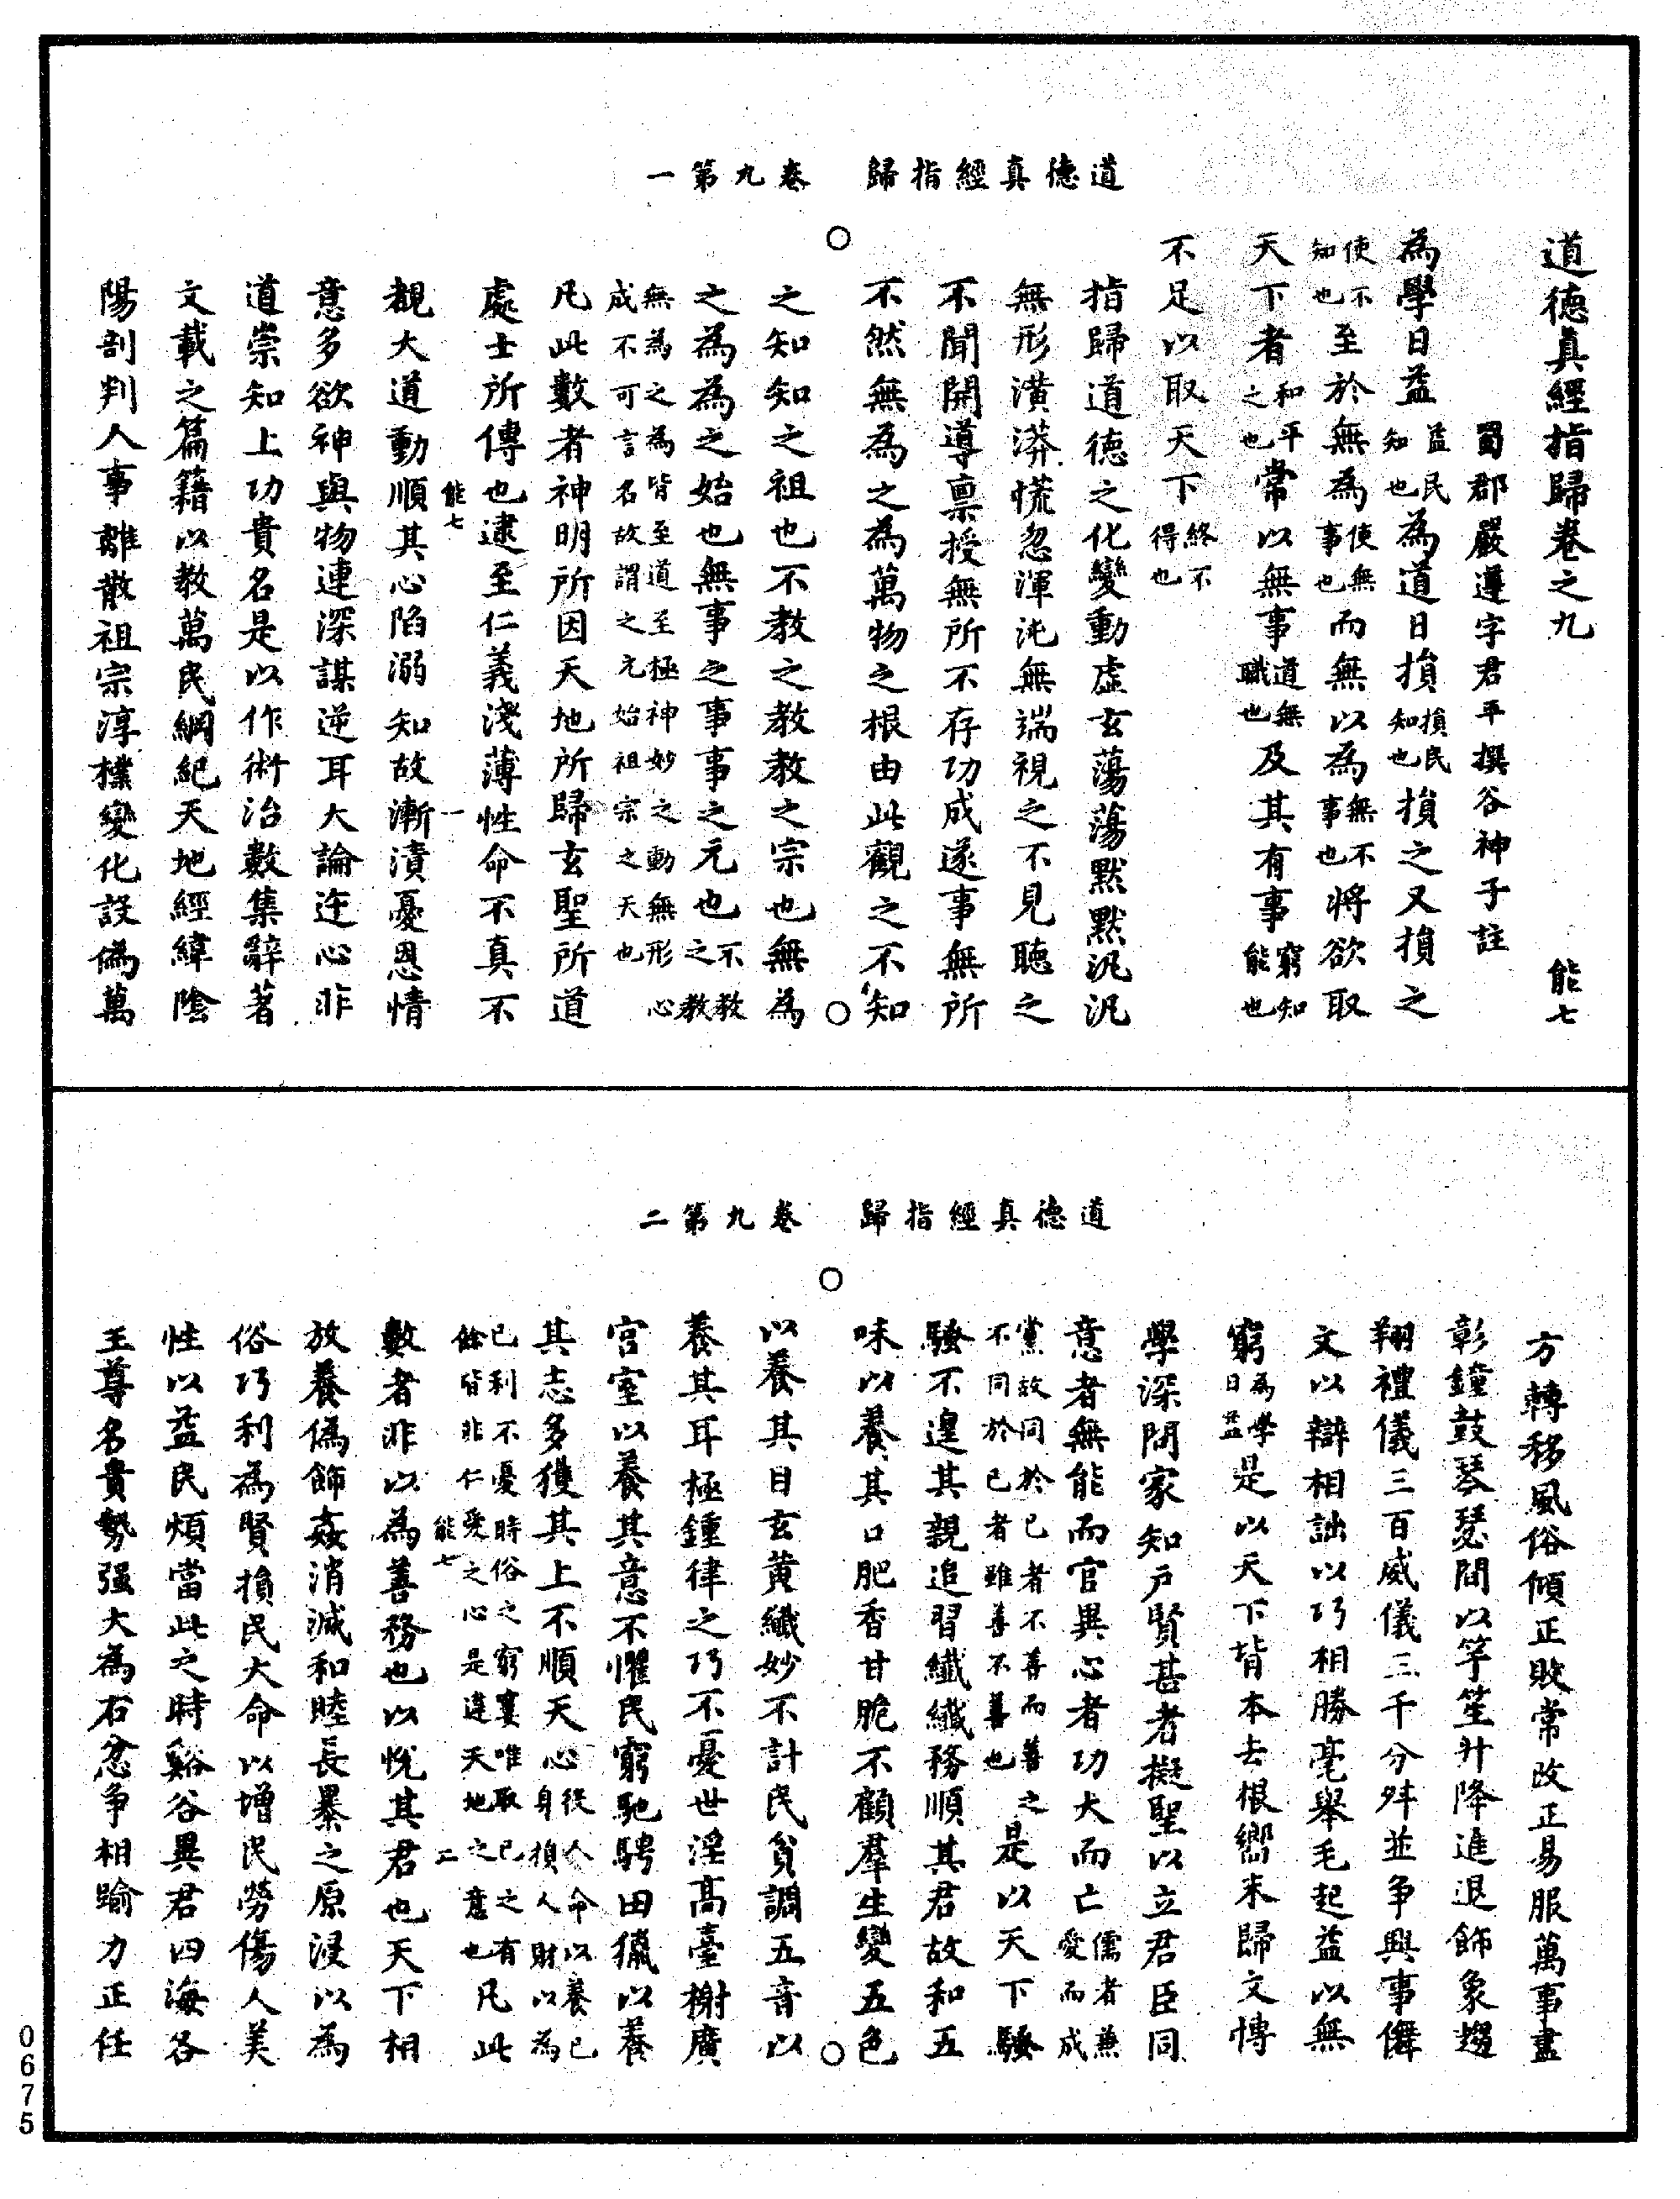 道德真經指歸　卷九第一
道德真經指歸卷之九　能七
蜀郡嚴遵字君平撰谷神子註
為學日益益民知也為道日損損民知也損之又損之
使不知也至於無為使無事也而無以為無不事也將欲取
天下者和平之也常以無事道無職也及其有事窮知能也
不足以取天下終不得也
指歸道德之化變動虛玄蕩蕩默默汎汎
無形潢漭慌忽渾沌無端視之不見聽之
不聞開導稟授無所不存功成遂事無所
不然無為之為萬物之根由此觀之不知
之知知之祖也不教之教教之宗也無為
之為為之始也無事之事事之元也不教之教
無為之為皆至道至極神妙之動無形心成不可言名故謂之元始祖宗之天也
凡此數者神明所因天地所歸玄聖所道
處士所傳也逮至仁義淺薄性命不真不
能七　一
覩大道動順其心陷溺知故漸漬憂恩情
意多欲神與物連深謀逆耳大論迕心非
道崇知上功貴名是以作術治數集辭著
文載之篇籍以教萬民綱紀天地經緯陰
陽剖判人事離散祖宗淳樸變化設偽萬
道德真經指歸　卷九第二
方轉移風俗傾正敗常改正易服萬事盡
彰鐘鼓琴瑟間以竽笙升降進退飾象趨
翔禮儀三百威儀三千分舛並争興事儛
文以辯相詘以巧相勝毫舉毛起益以無
窮為學日益是以天下背本去根嚮末歸文慱
學深問家知戶賢甚者擬聖以立君臣同
意者無能而官異心者功大而亡儒者兼愛而成
黨故同於已者不善而善之不同於已者雖善不善也是以天下騷
騷不遑其親追習纖纖務順其君故和五
味以養其口肥香甘脆不顧羣生變五色
以養其目玄黃纖妙不計民貧調五音以
養其耳極鍾律之巧不憂世淫高臺榭廣
宮室以養其意不懼民窮馳騁田獵以養
其志多獲其上不順天心從人命以養已身損人財以為
已利不憂時俗之窮寠唯取已之有餘皆非仁愛之心是違天地之意也凡此
能七　二
數者非以為善務也以悅其君也天下相
放養偽飾姦消滅和睦長暴之原浸以為
俗巧利為賢損民大命以增民勞傷人美
性以益民煩當此之時谿谷異君四海各
王尊名貴勢强大為右忿争相踰力正任
0675